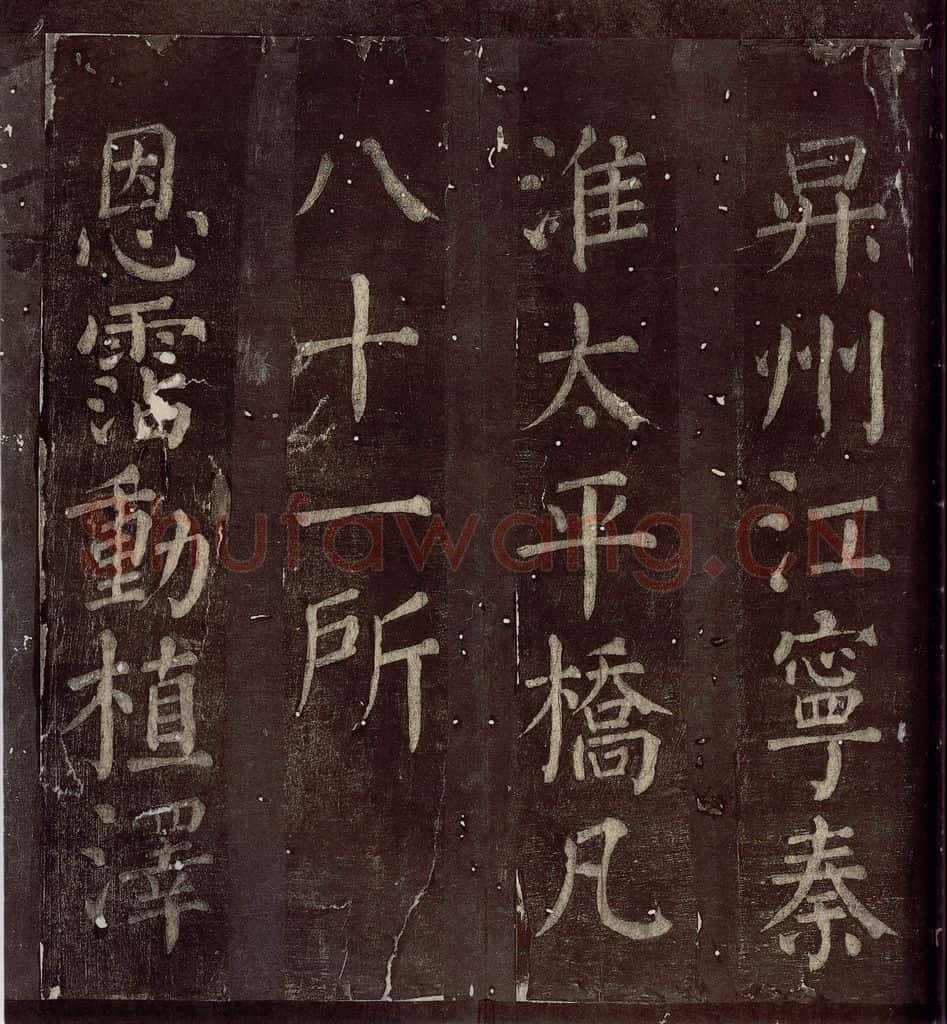 昇州江寧秦
淮太平橋凡
八十一所
恩霑動植澤
Shufawang.CN